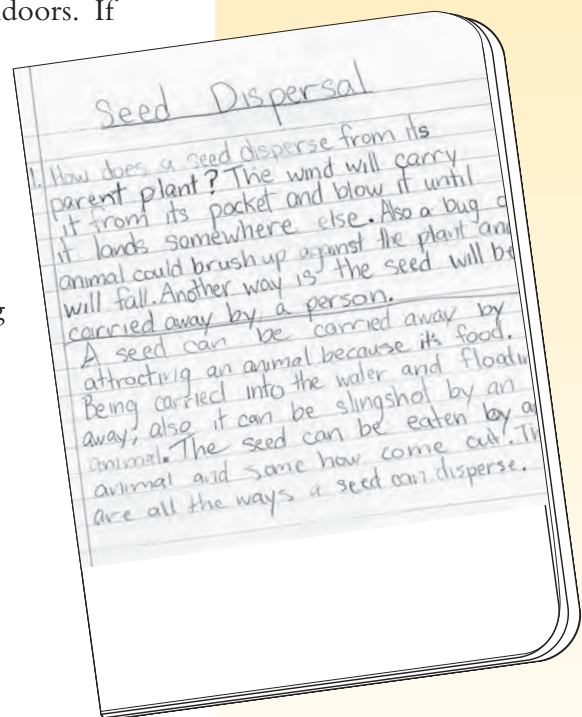 doors. If
Seed Dispersal
1. How does a seed disperse from its
parent plant? The wind will carry
it from its pocket and blow it until
it lands somewhere else. Also a bug o
animal could brush up against the plant and
will fall. Another way is the seed will be
carried away by a person.
A seed can be carried away by
attracting an animal because its food.
Being carried into the water and floatin
away, also it can be slingshot by an
animal. The seed can be eaten by a
animal and some how come out. Th
are all the ways a seed can disperse.
g